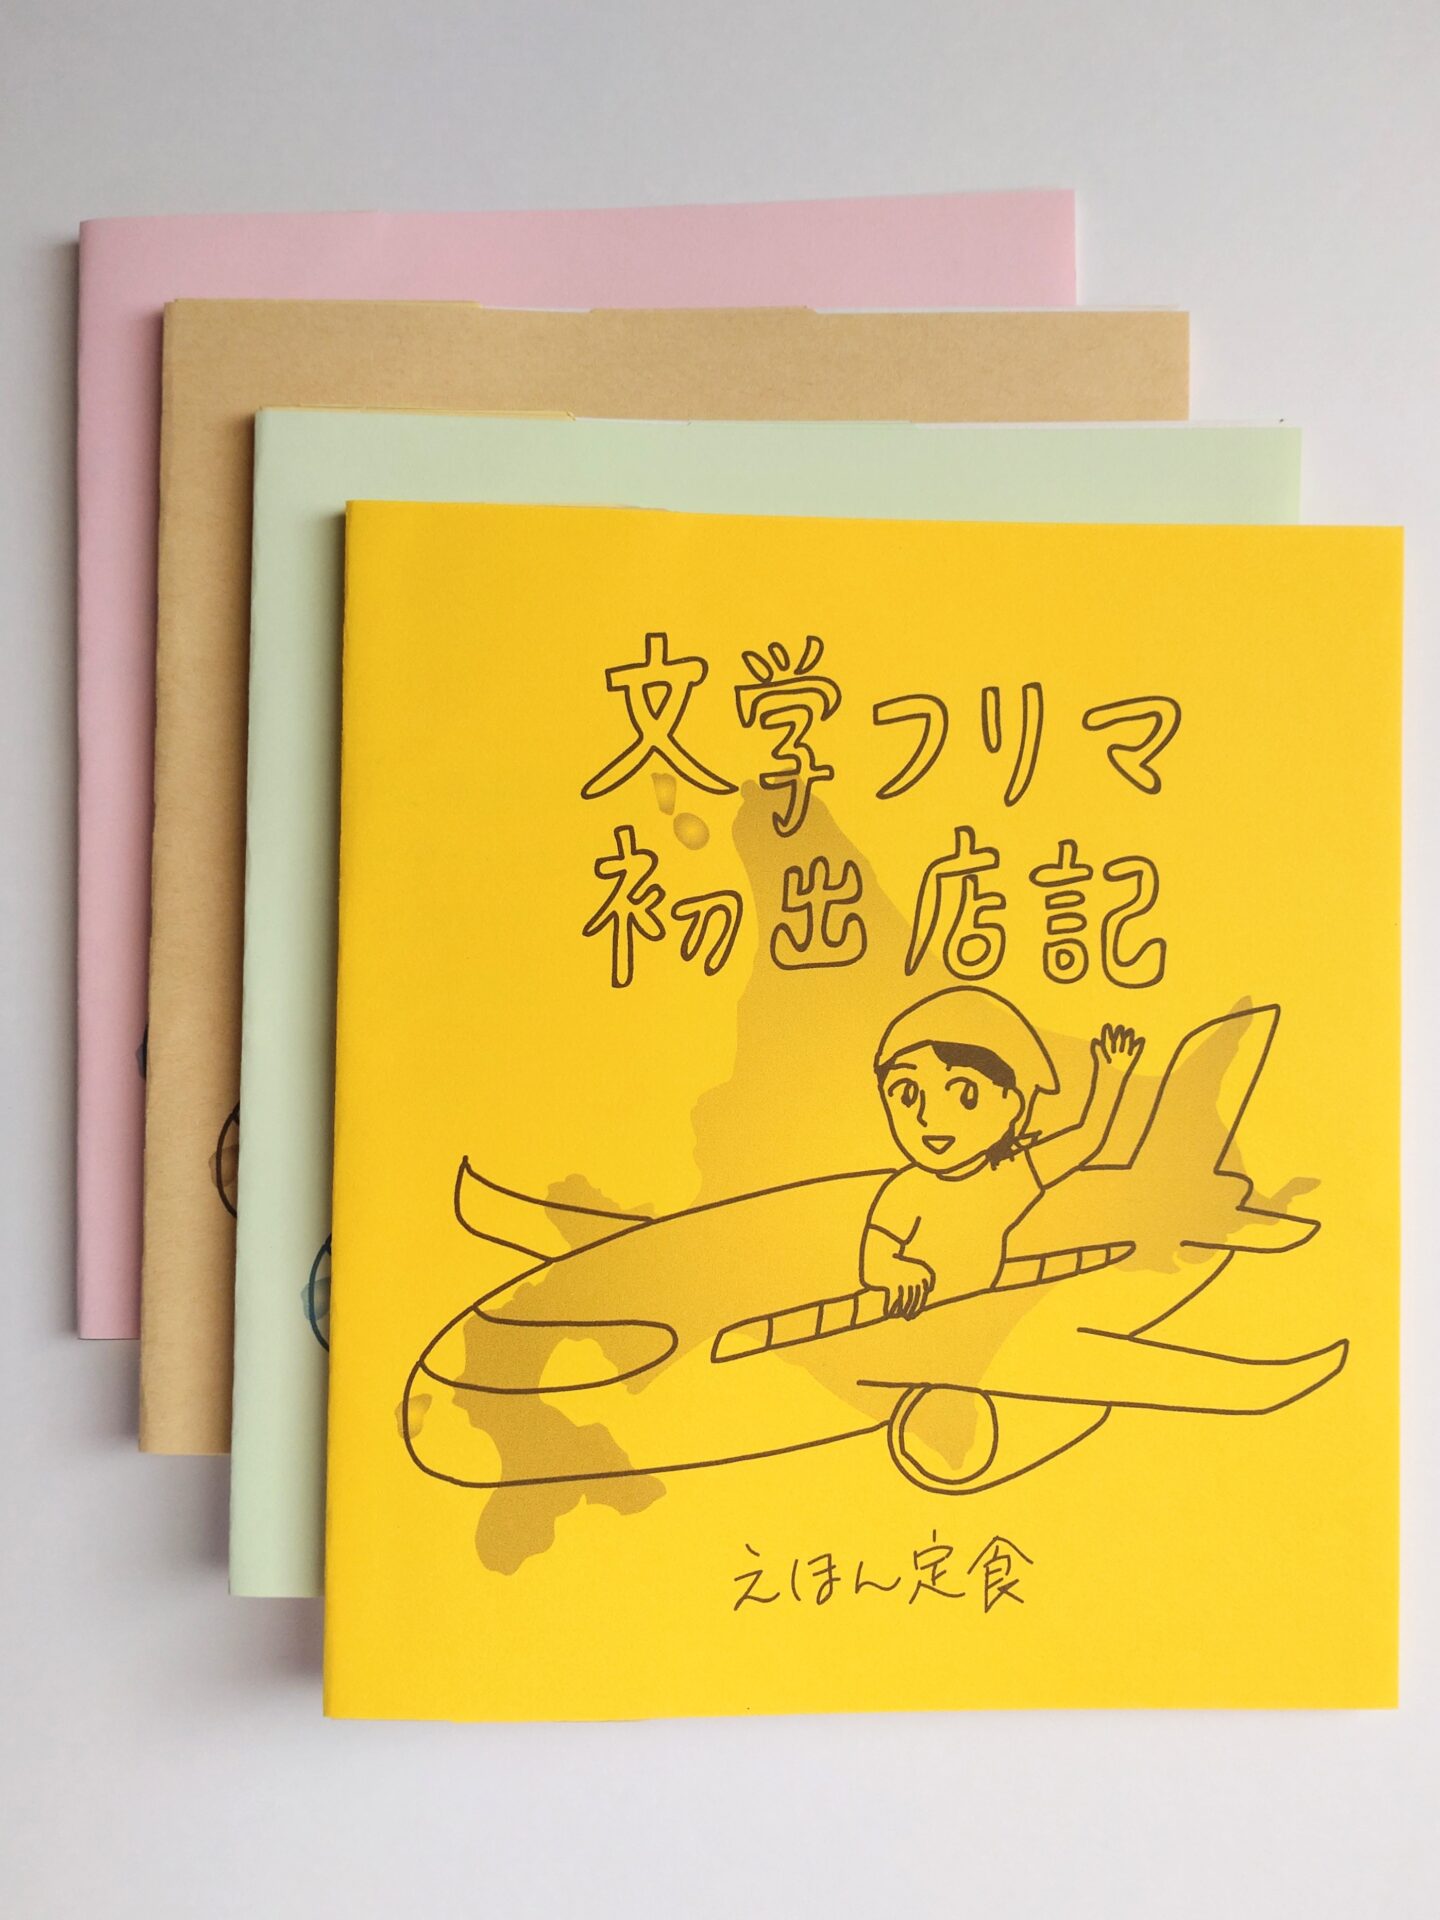 文学フリマ
初出店記
えほん定食